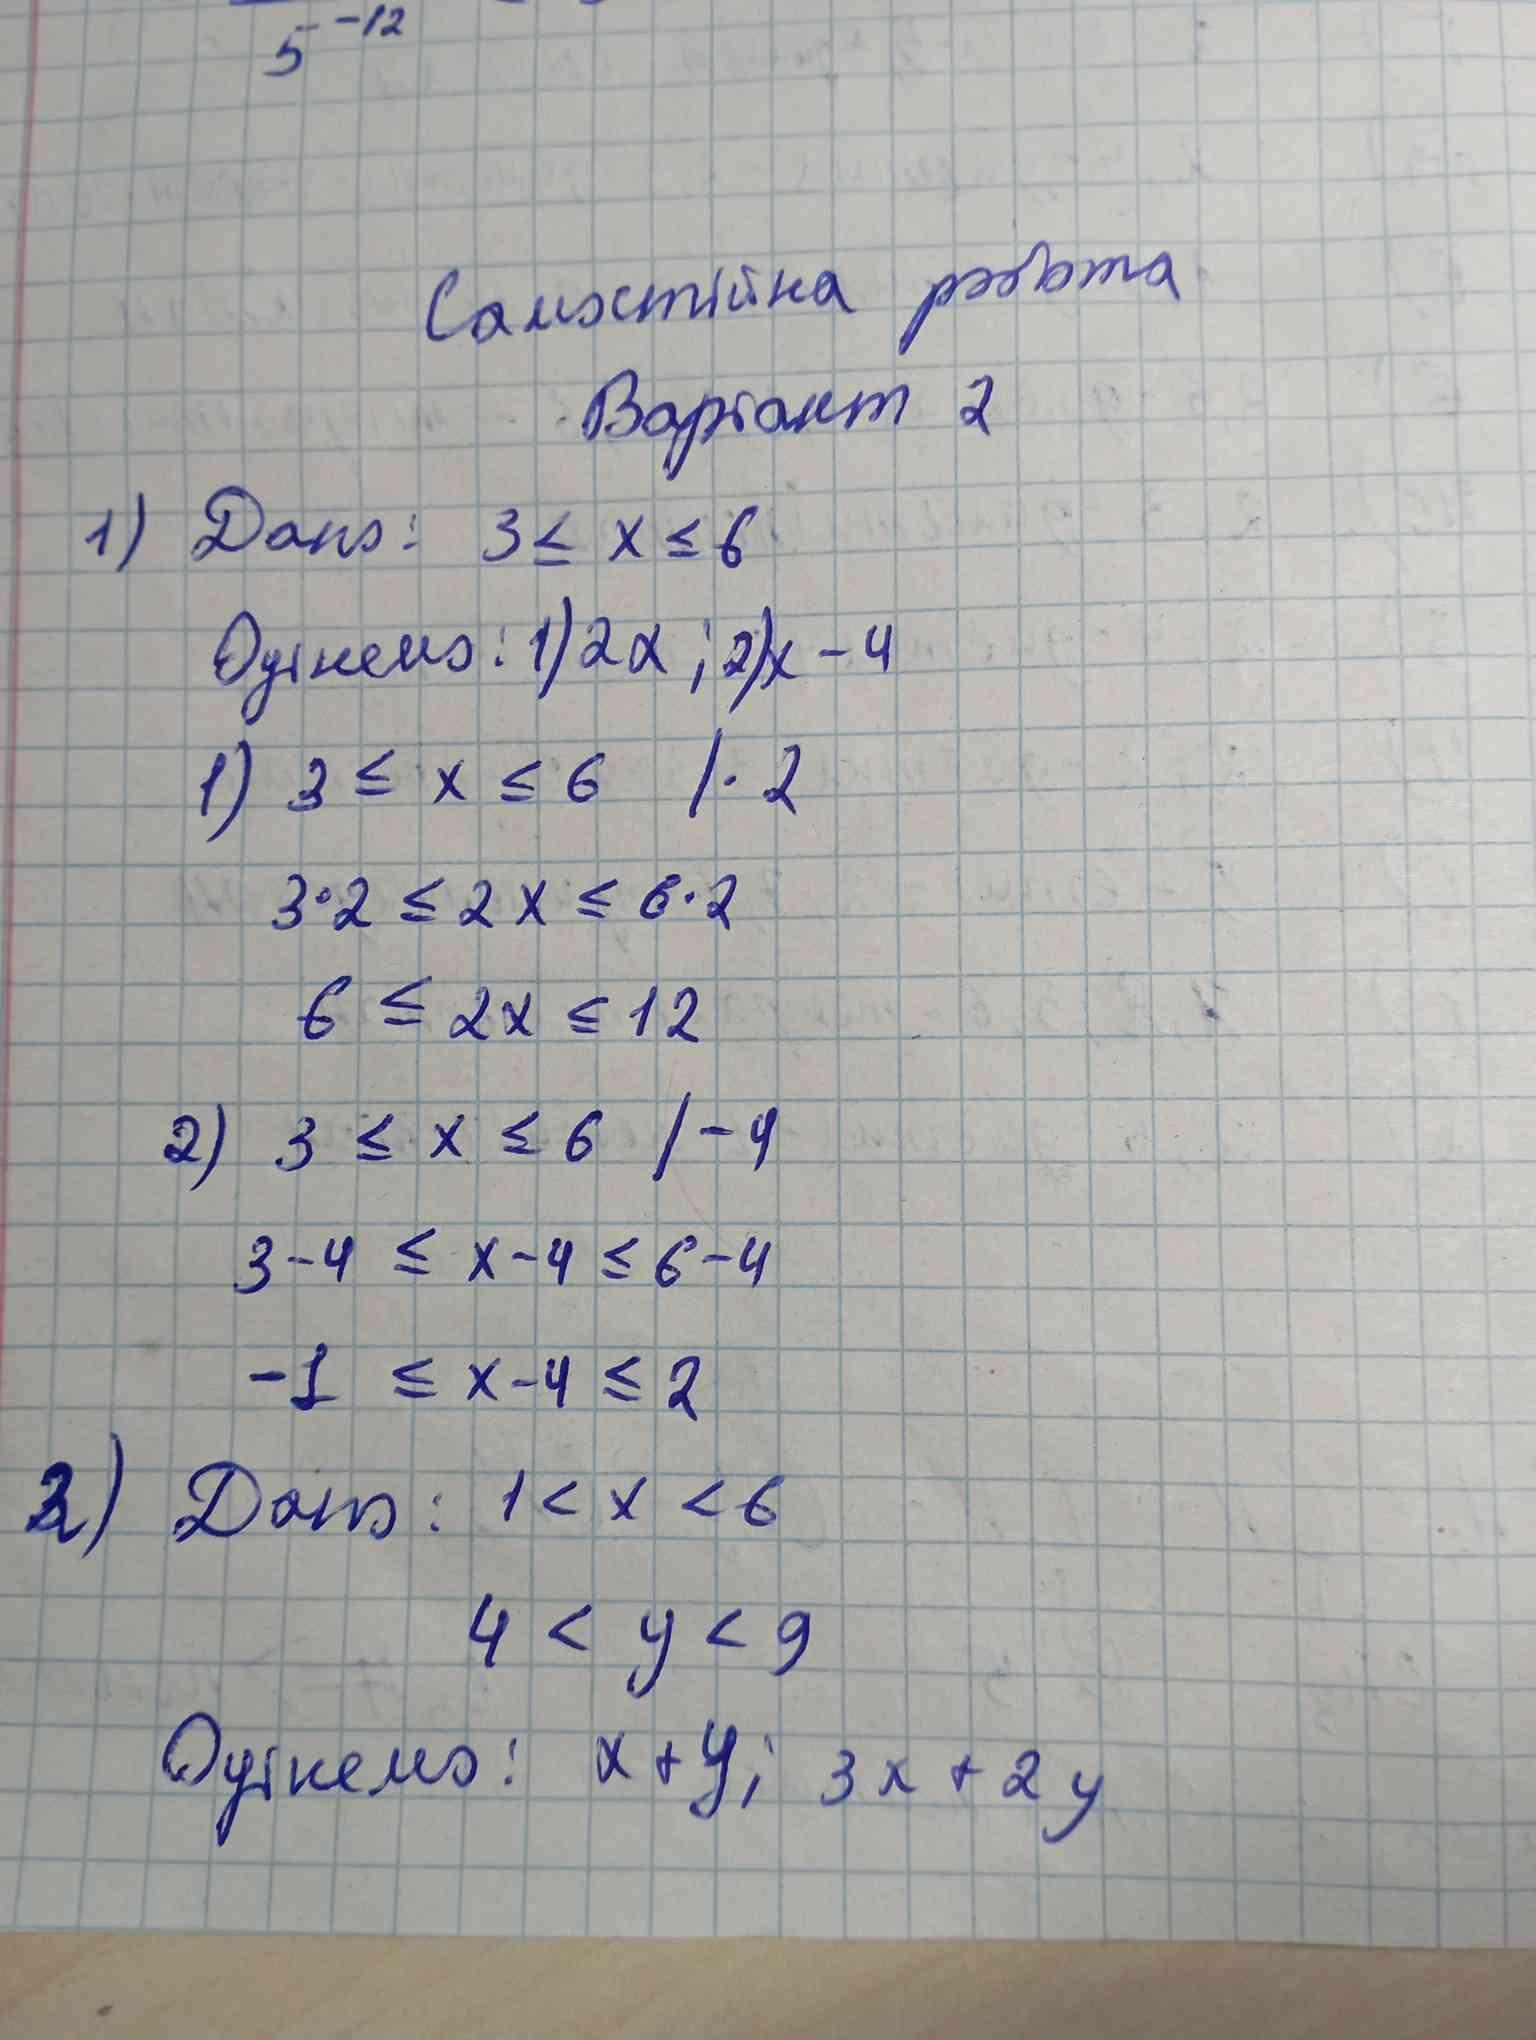 5⁻¹²
Самостійна робота
Варіант 2
1) Дано: 3 ≤ x ≤ 6
Оцінемо: 1) 2x ; 2) x - 4
1) 3 ≤ x ≤ 6 / · 2
3·2 ≤ 2x ≤ 6·2
6 ≤ 2x ≤ 12
2) 3 ≤ x ≤ 6 / - 4
3-4 ≤ x-4 ≤ 6-4
-1 ≤ x-4 ≤ 2
2) Дано: 1 < x < 6
4 < y < 9
Оцінемо: x + y; 3x + 2y